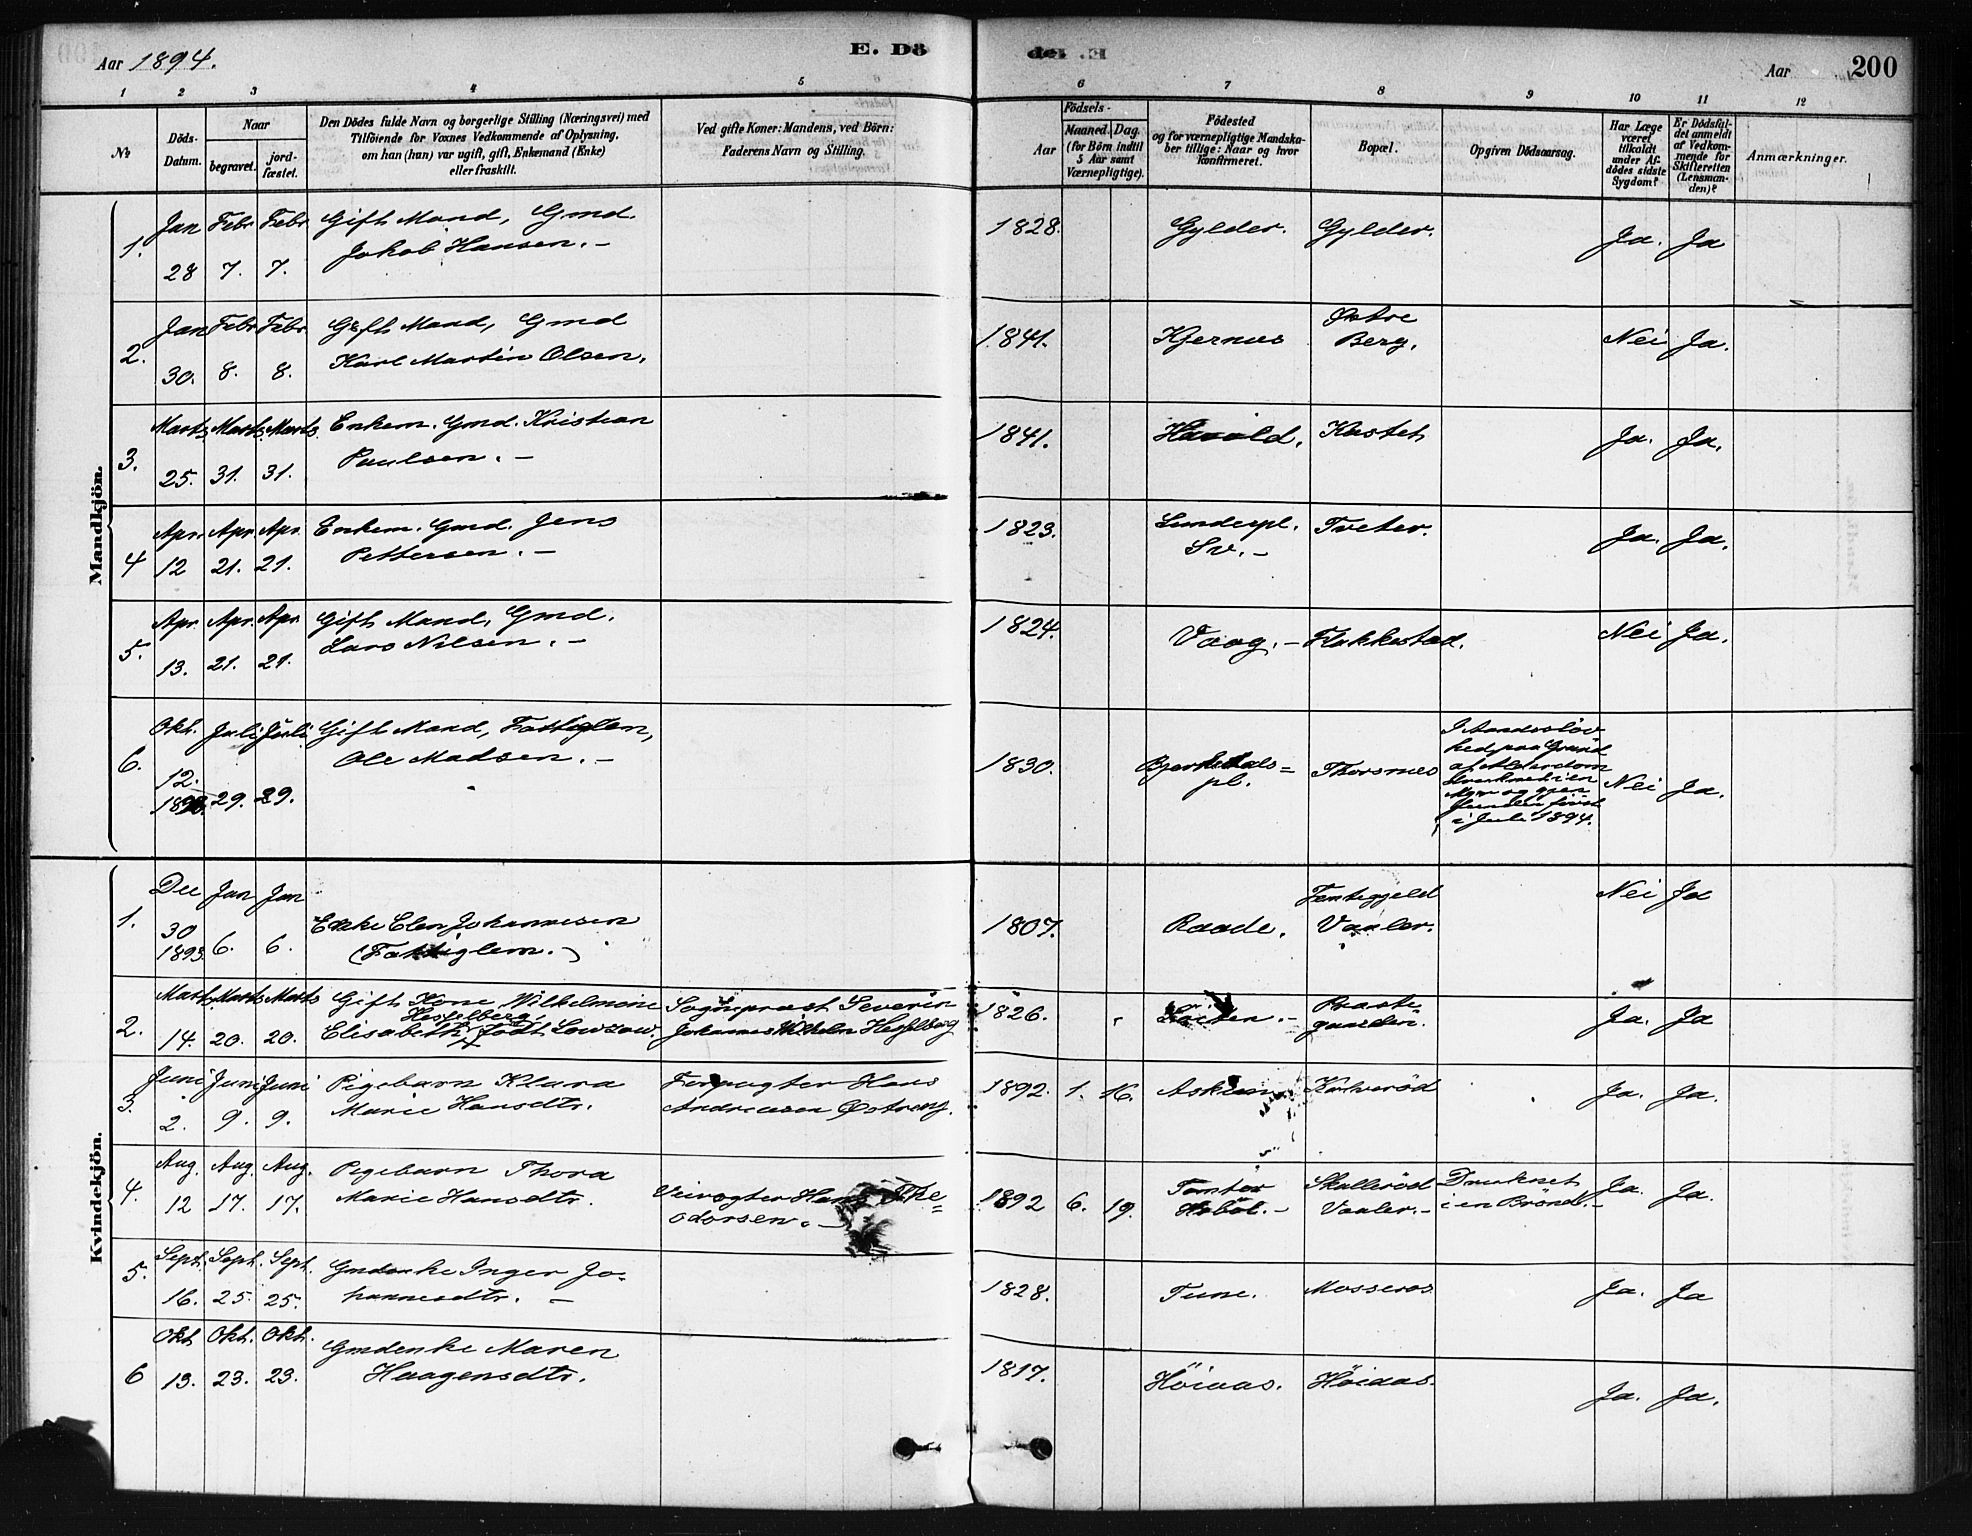 Aar 1894.
E. Dö
Aar
200
1 2 3 4 5 6 7 8 9 10 11 12
No
Döds-Datum.
Naar
begravet.
jord-fæstet.
Den Dödes fulde Navn og borgerlige Stilling (Næringsvei) med
Tilföiende for Voxnes Vedkommende af Oplysning,
om han (hun) var ugift, gift, Enkemand (Enke)
eller fraskilt.
Ved gifte Koner: Mandens, ved Börn:
Faderens Navn og Stilling.
Födsels-
Aar
Maaned. Dag.
(for Börn indtil
5 Aar samt
Værnepligtige).
Födested
og for værnepligtige Mandska-
ber tillige: Naar og hvor
konfirmeret.
Bopæl.
Opgiven Dödsaarsag.
Har Læge
været
tilkaldt
under Af-
dödes sidste
Sygdom?
Er Dödsfal-
det anmeldt
af Vedkom-
mende for
Skifteretten
(Lensman-
den)?
Anmærkninger.
Mandkjön.
1. Jan 28 Febr 7. Febr 7. Gift Mand, Gmd.
Jakob Hansen. – 1828. Gylder. Gylder. Ja. Ja
2. Jan 30. Febr 8. Febr 8. Gift Mand, Gmd
Karl Martin Olsen. 1841. Kjernes Østre
Berg. Nei Ja.
3. Marts 25. Marts 31. Marts 31. Enkem. Gmd. Kristian
Paulsen. – 1841. Kastet Ja. Ja.
4 Apr. 12 Apr. 21. Apr. 21. Enkem. Gmd. Jens
Pettersen. – 1823. Sunderpl.
Sv. – Tveter. Ja. Ja.
5. Apr. 13. Apr. 21. Apr. 21. Gift Mand, Gmd.
Lars Nilsen. – 1824. Vaag. – Flakkestad. Nei Ja.
6. Okt. 12. Juli 29. Juli 29. Gift Mand, Fattiglem,
Ole Madsen. – 1830. pl. Thorsnes I Aandssløv-
hed paa Grund
af Alderdom
i en
Myr og gjen-
funden først
i Juli 1894. Nei Ja.
Kvindekjön.
1. Dec 30 1893. Jan 6. Jan 6. Enke Elen Johannesen
(Fattiglem.) 1807. Raade. Vaaler. Nei Ja
2. Marts 14. Marts 20. Marts 20. Gift Kone Wilhelmine
Hesselberg,
Elisabeth født Lowzow Sogneprest Severin
Johannes Wilhelm Hesselberg 1826. Løiten. – Præste-
gaarden. Ja. Ja
3. Juni 2. Juni 9. Juni 9. Pigebarn Klara
Marie Hansdtr. Forpagter Hans
Andreasen Østreng. 1892. 1. 16. Askim Ja. Ja.
4. Aug. 12 Aug. 17. Aug. 17. Pigebarn Thora
Marie Hansdtr. Veivogter Hans The=
odorsen. – 1892 6. 19. Tomter
Hobøl. – Skallerød
Vaaler. – Druknet
i en Brønd. – Ja. Ja.
5. Sept. 16. Sept. 25. Sept. 25. Gmdenke Inger Jo-
hannesdtr. – 1828. Tune. Mosseros. Ja. Ja
6 Okt 13. Okt. 23. Okt. 23. Gmdenke Maren
Haagensdtr. 1817. Höiaas. Höiaas. Ja. Ja.